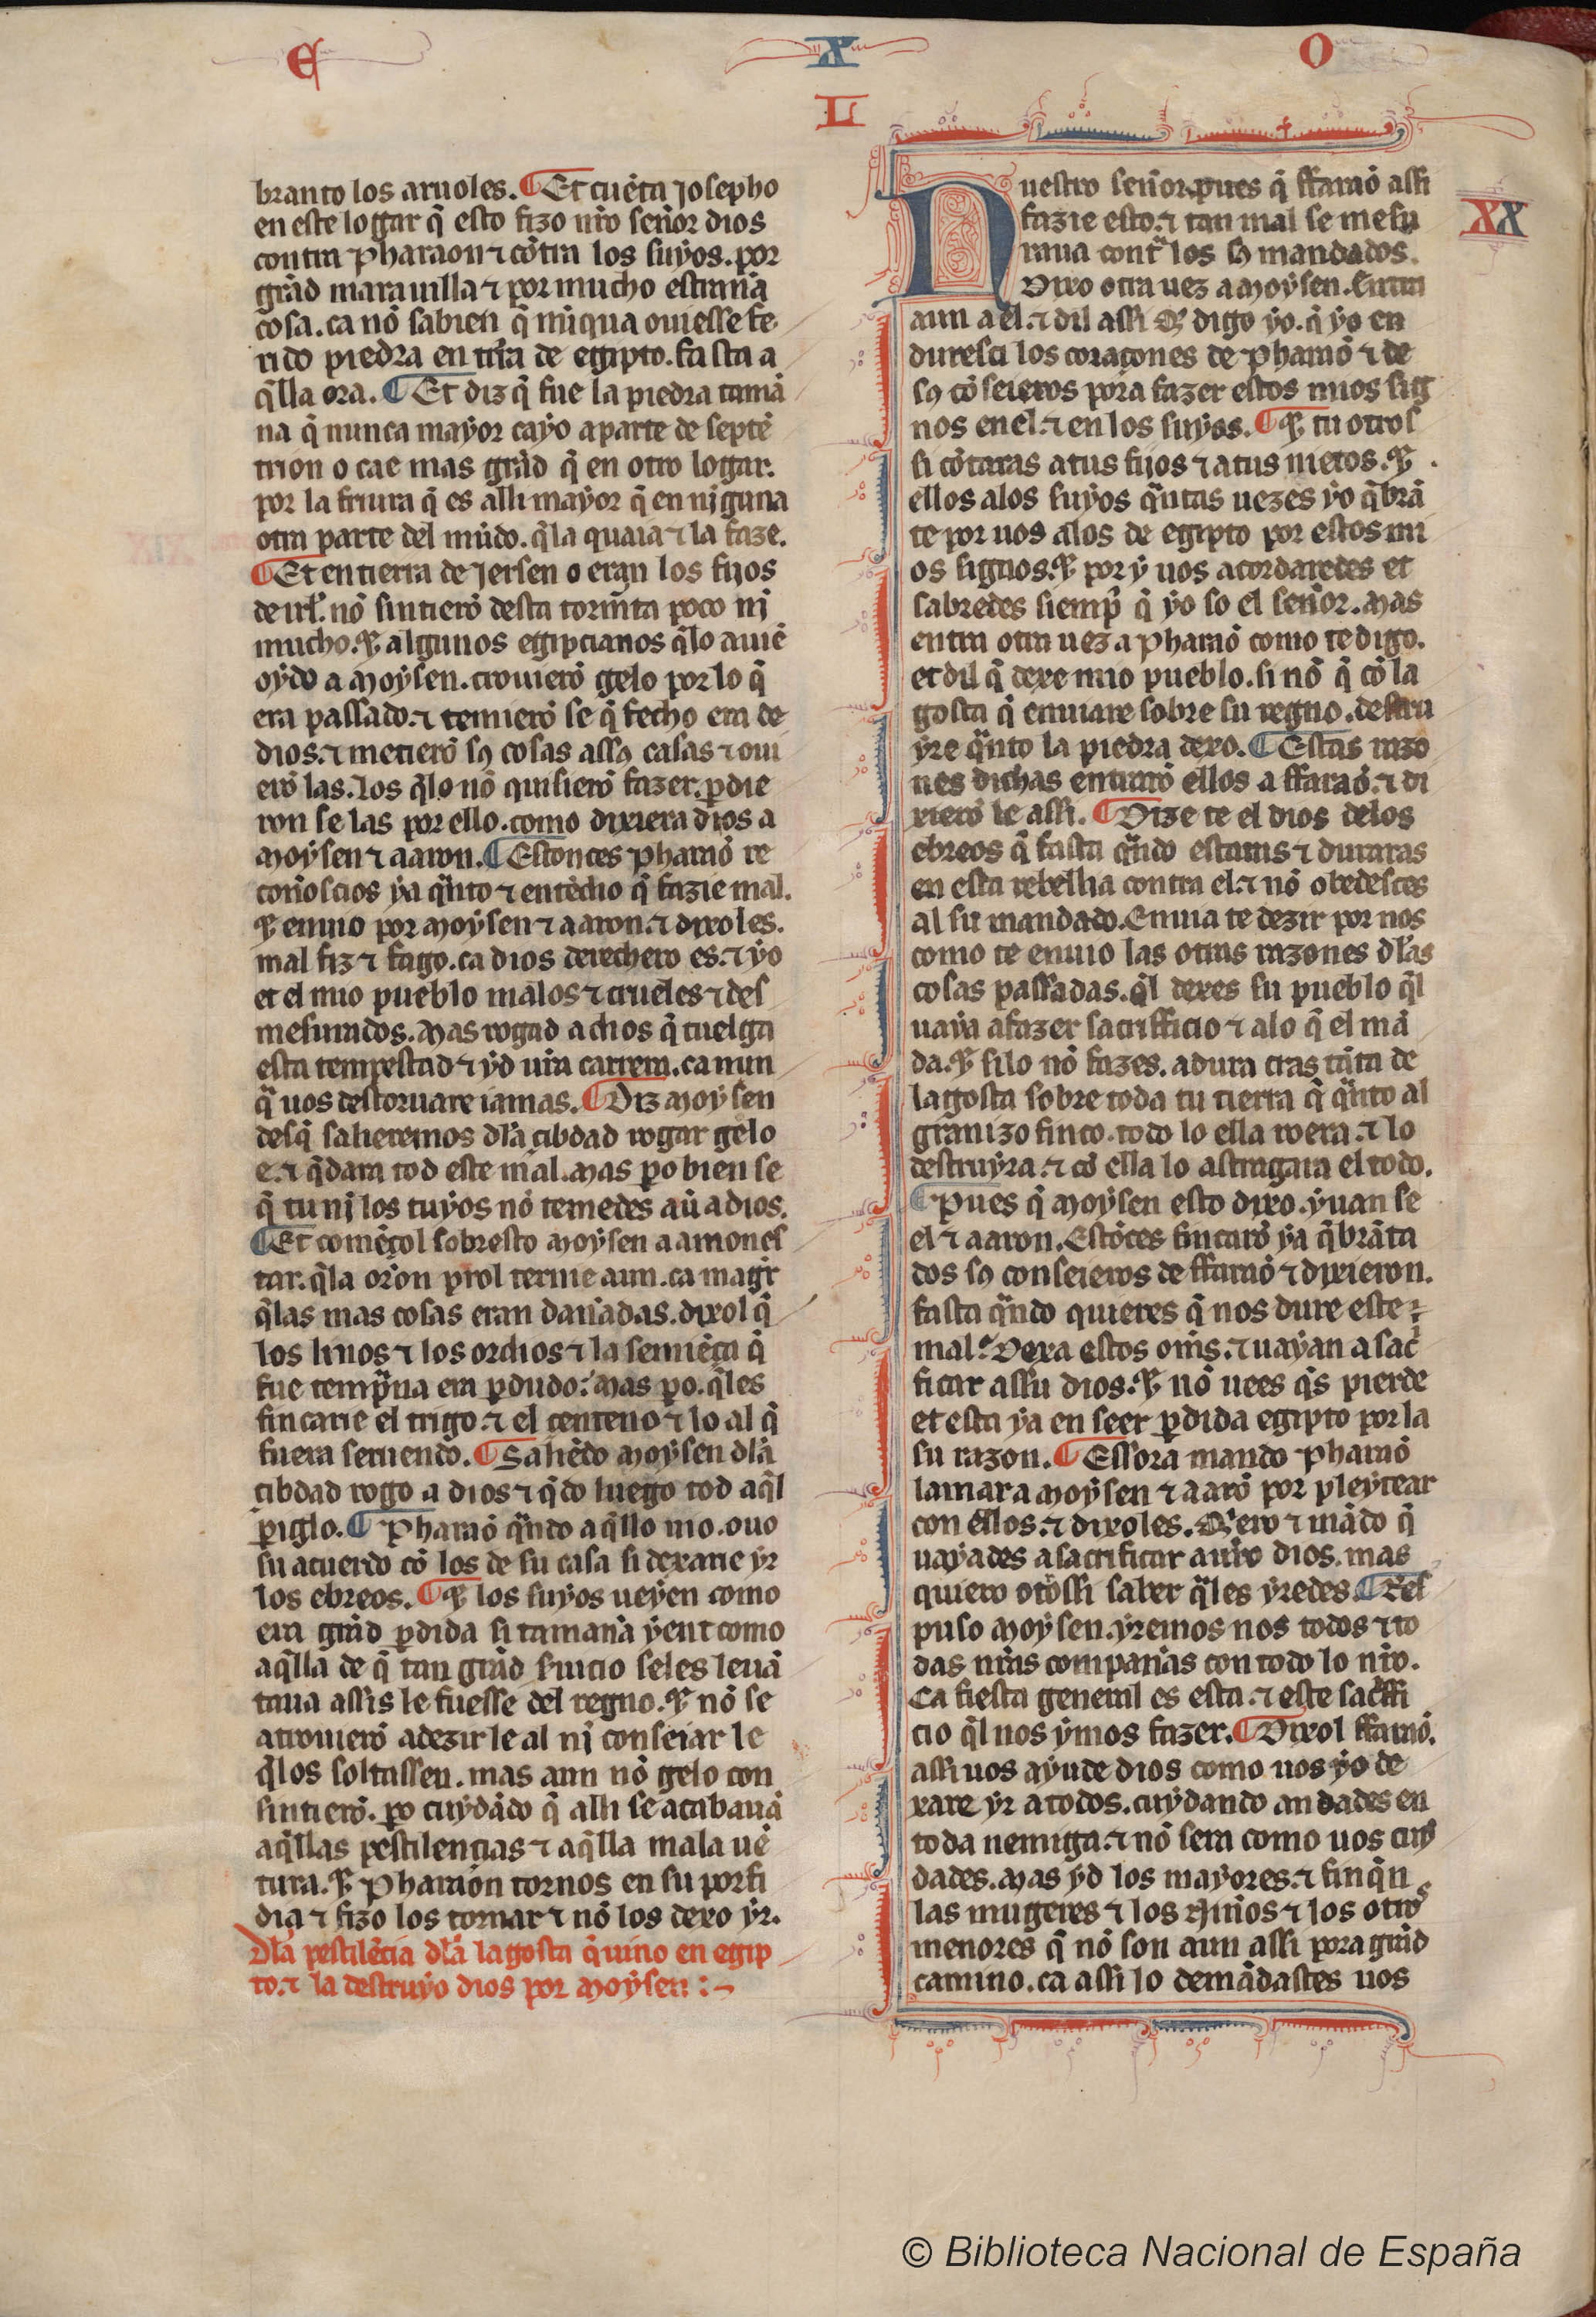 E X O
L
branto los aruoles. ¶ Et cuẽta Josepho
en este logar q̃ esto fizo nr̃o señor dios
contra pharaon ⁊ cõtra los suyos. por
grãd marauilla ⁊ por mucho estranna
cosa. ca nõ sabien q̃ nũqua ouiesse fe
rido piedra en tr̃ra de egipto. fasta a
q̃lla ora. ¶ Et diz q̃ fue la piedra tamã
na q̃ nunca mayor cayo a parte de septẽ
trion o cae mas grãd q̃ en otro logar.
por la friura q̃ es alli mayor q̃ en njguna
otra parte del mũdo. q̃la quaia ⁊ la faze.
¶ Et en tierra de Jersen o eran los fijos
de irl̃. nõ sintierõ desta torm̃ta poco nj
mucho. ⁊ algunos egipcianos q̃lo auiẽ
oydo a moysen. crouierõ gelo por lo q̃
era passado. ⁊ temierõ se q̃ fecho era de
dios. ⁊ metierõ sꝯ cosas assꝯ casas ⁊ oui
erõ las. los q̃lo nõ quisierõ fazer. ꝑdie
ron se las por ello. como dixiera dios a
moysen ⁊ aaron. ¶ Estonces pharaõ re
coñoscios ya q̃nto ⁊ entẽdio q̃ fazie mal.
⁊ enuio por moysen ⁊ aaron. ⁊ dixoles.
mal fiz ⁊ fago. ca dios derechero es. ⁊ yo
et el mio pueblo malos ⁊ crueles ⁊ des
mesurados. mas rogad a dios q̃ tuelga
esta tempestad ⁊ yd ur̃a carrera. ca nun
q̃ uos destoruare iamas. ¶ Diz moysen
desq̃ salieremos dl̃a çibdad rogar gelo
e. ⁊ q̃dara tod este mal. mas ꝑo bien se
q̃ tu nj los tuyos nõ temedes aũ a dios.
¶ Et comẽçol sobresto moysen a amones
tar. q̃la or̃on prol terrnie aun. ca magr̃
q̃las mas cosas eran dañadas. dixol q̃
los linos ⁊ los ordios ⁊ la semiẽça q̃
fue tempr̃na era ꝑdudo: mas ꝑo. q̃les
fincarie el trigo. ⁊ el çenteno ⁊ lo al q̃
fuera seruendo. ¶ Saliẽdo moysen dl̃a
çibdad rogo a dios ⁊ q̃do luego tod aq̃l
ꝑiglo. ¶ Pharaõ q̃ndo aq̃llo uio. ouo
su acuerdo cõ los de su casa si dexarie yr
los ebreos. ¶ ⁊ los suyos ueyen como
era grãd ꝑdida si tamana yent como
aq̃lla de q̃ tan grãd seruicio seles leuã
taua assis le fuesse del regno. ⁊ nõ se
atrouierõ adezir le al nj conseiar le
q̃los soltassen. mas aun nõ gelo con
sintierõ. ꝑo cuydãdo q̃ alli se acabauã
aq̃llas pestilencias ⁊ aq̃lla mala uẽ
tura. ⁊ Pharaon tornos en su porfi
dia ⁊ fizo los tornar ⁊ nõ los dexo yr.
Dl̃a pestilẽcia dl̃a lagosta q̃ uino en egip
to. ⁊ la destruyo dios por moysen :~
XX
Nuestro señor. pues q̃ ffaraõ assi
fazie esto. ⁊ tan mal se mesu
raua contr̃ los sꝯ mandados.
Dixo otra uez a moysen. Entra
aun a el. ⁊ dil assi Q̃ digo yo. q̃ yo en
duresci los coraçones de pharaõ ⁊ de
sꝯ cõseieros pora fazer estos mios sig
nos en el. ⁊ en los suyos. ¶ ⁊ tu otros
si cõtaras a tus fijos ⁊ a tus nietos. ⁊
ellos alos suyos q̃ntas uezes yo q̃brã
te por uos alos de egipto por estos mi
os signos. ⁊ por y uos acordaredes et
sabredes siempr̃ q̃ yo so el señor. mas
entra otra uez a pharaõ como te digo.
et dil q̃ dexe mio pueblo. si nõ q̃ cõ la
gosta q̃ enuiare sobre su regno. destru
yre q̃nto la piedra dexo. ¶ Estas razo
nes dichas entrarõ ellos a ffaraõ. ⁊ di
xierõ le assi. ¶ Dize te el dios delos
ebreos q̃ fasta q̃ndo estaras ⁊ duraras
en esta rebellia contra el. ⁊ nõ obedesces
al su mandado. Enuia te dezir por nos
como te enuio las otras razones dl̃as
cosas passadas. q̃l dexes su pueblo q̃l
uaya a fazer sacrifficio ⁊ a lo q̃ el mã
da. ⁊ silo nõ fazes. adura cras tãta de
lagosta sobre toda tu tierra q̃ q̃nto al
granizo finco. todo lo ella roera. ⁊ lo
destruyra. ⁊ cõ ella lo astragara el todo.
¶ Pues q̃ moysen esto dixo. yuan se
el ⁊ aaron. Estõces fincarõ ya q̃brãta
dos sꝯ conseieros de ffaraõ ⁊ dixieron.
fasta q̃ndo quieres q̃ nos dure este
mal? Dexa estos om̃s. ⁊ uayan a sacr̃
ficar assu dios. ⁊ nõ uees q̃s pierde
et esta ya en seer ꝑdida egipto por la
su razon. ¶ Essora mando pharaõ
lamar a moysen ⁊ aarõ por pleytear
con ellos. ⁊ dixoles. Q̃ero ⁊ mãdo q̃
uayades a sacrificar a ur̃o dios. mas
quiero otrõssi saber q̃les yredes. ¶ Res
puso moysen. yremos nos todos ⁊ to
das nr̃as compañas con todo lo nr̃o.
Ca fiesta general es esta. ⁊ este sacr̃ffi
cio q̃l nos ymos fazer. ¶ Dixol ffaraõ.
assi uos ayude dios como uos yo de
xare yr a todos. cuydando andades en
toda nemiga. ⁊ nõ sera como uos cuy
dades. mas yd los mayores. ⁊ finq̃n
las mugeres ⁊ los njños ⁊ los otros
menores q̃ nõ son aun assi pora grãd
camino. ca assi lo demãdastes uos
© Biblioteca Nacional de España